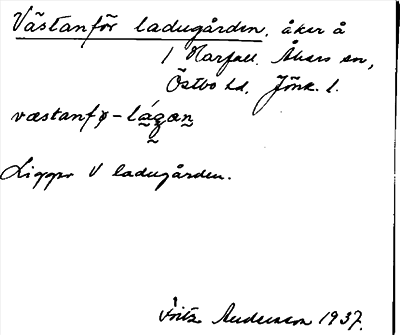 Västanför ladugården, åker å
1 Marfall. Åkers sn,
Östbo hd, Jönk. l.
væstanfø-lágæn
Ligger V ladugården.
Fritz Andersson 1937.